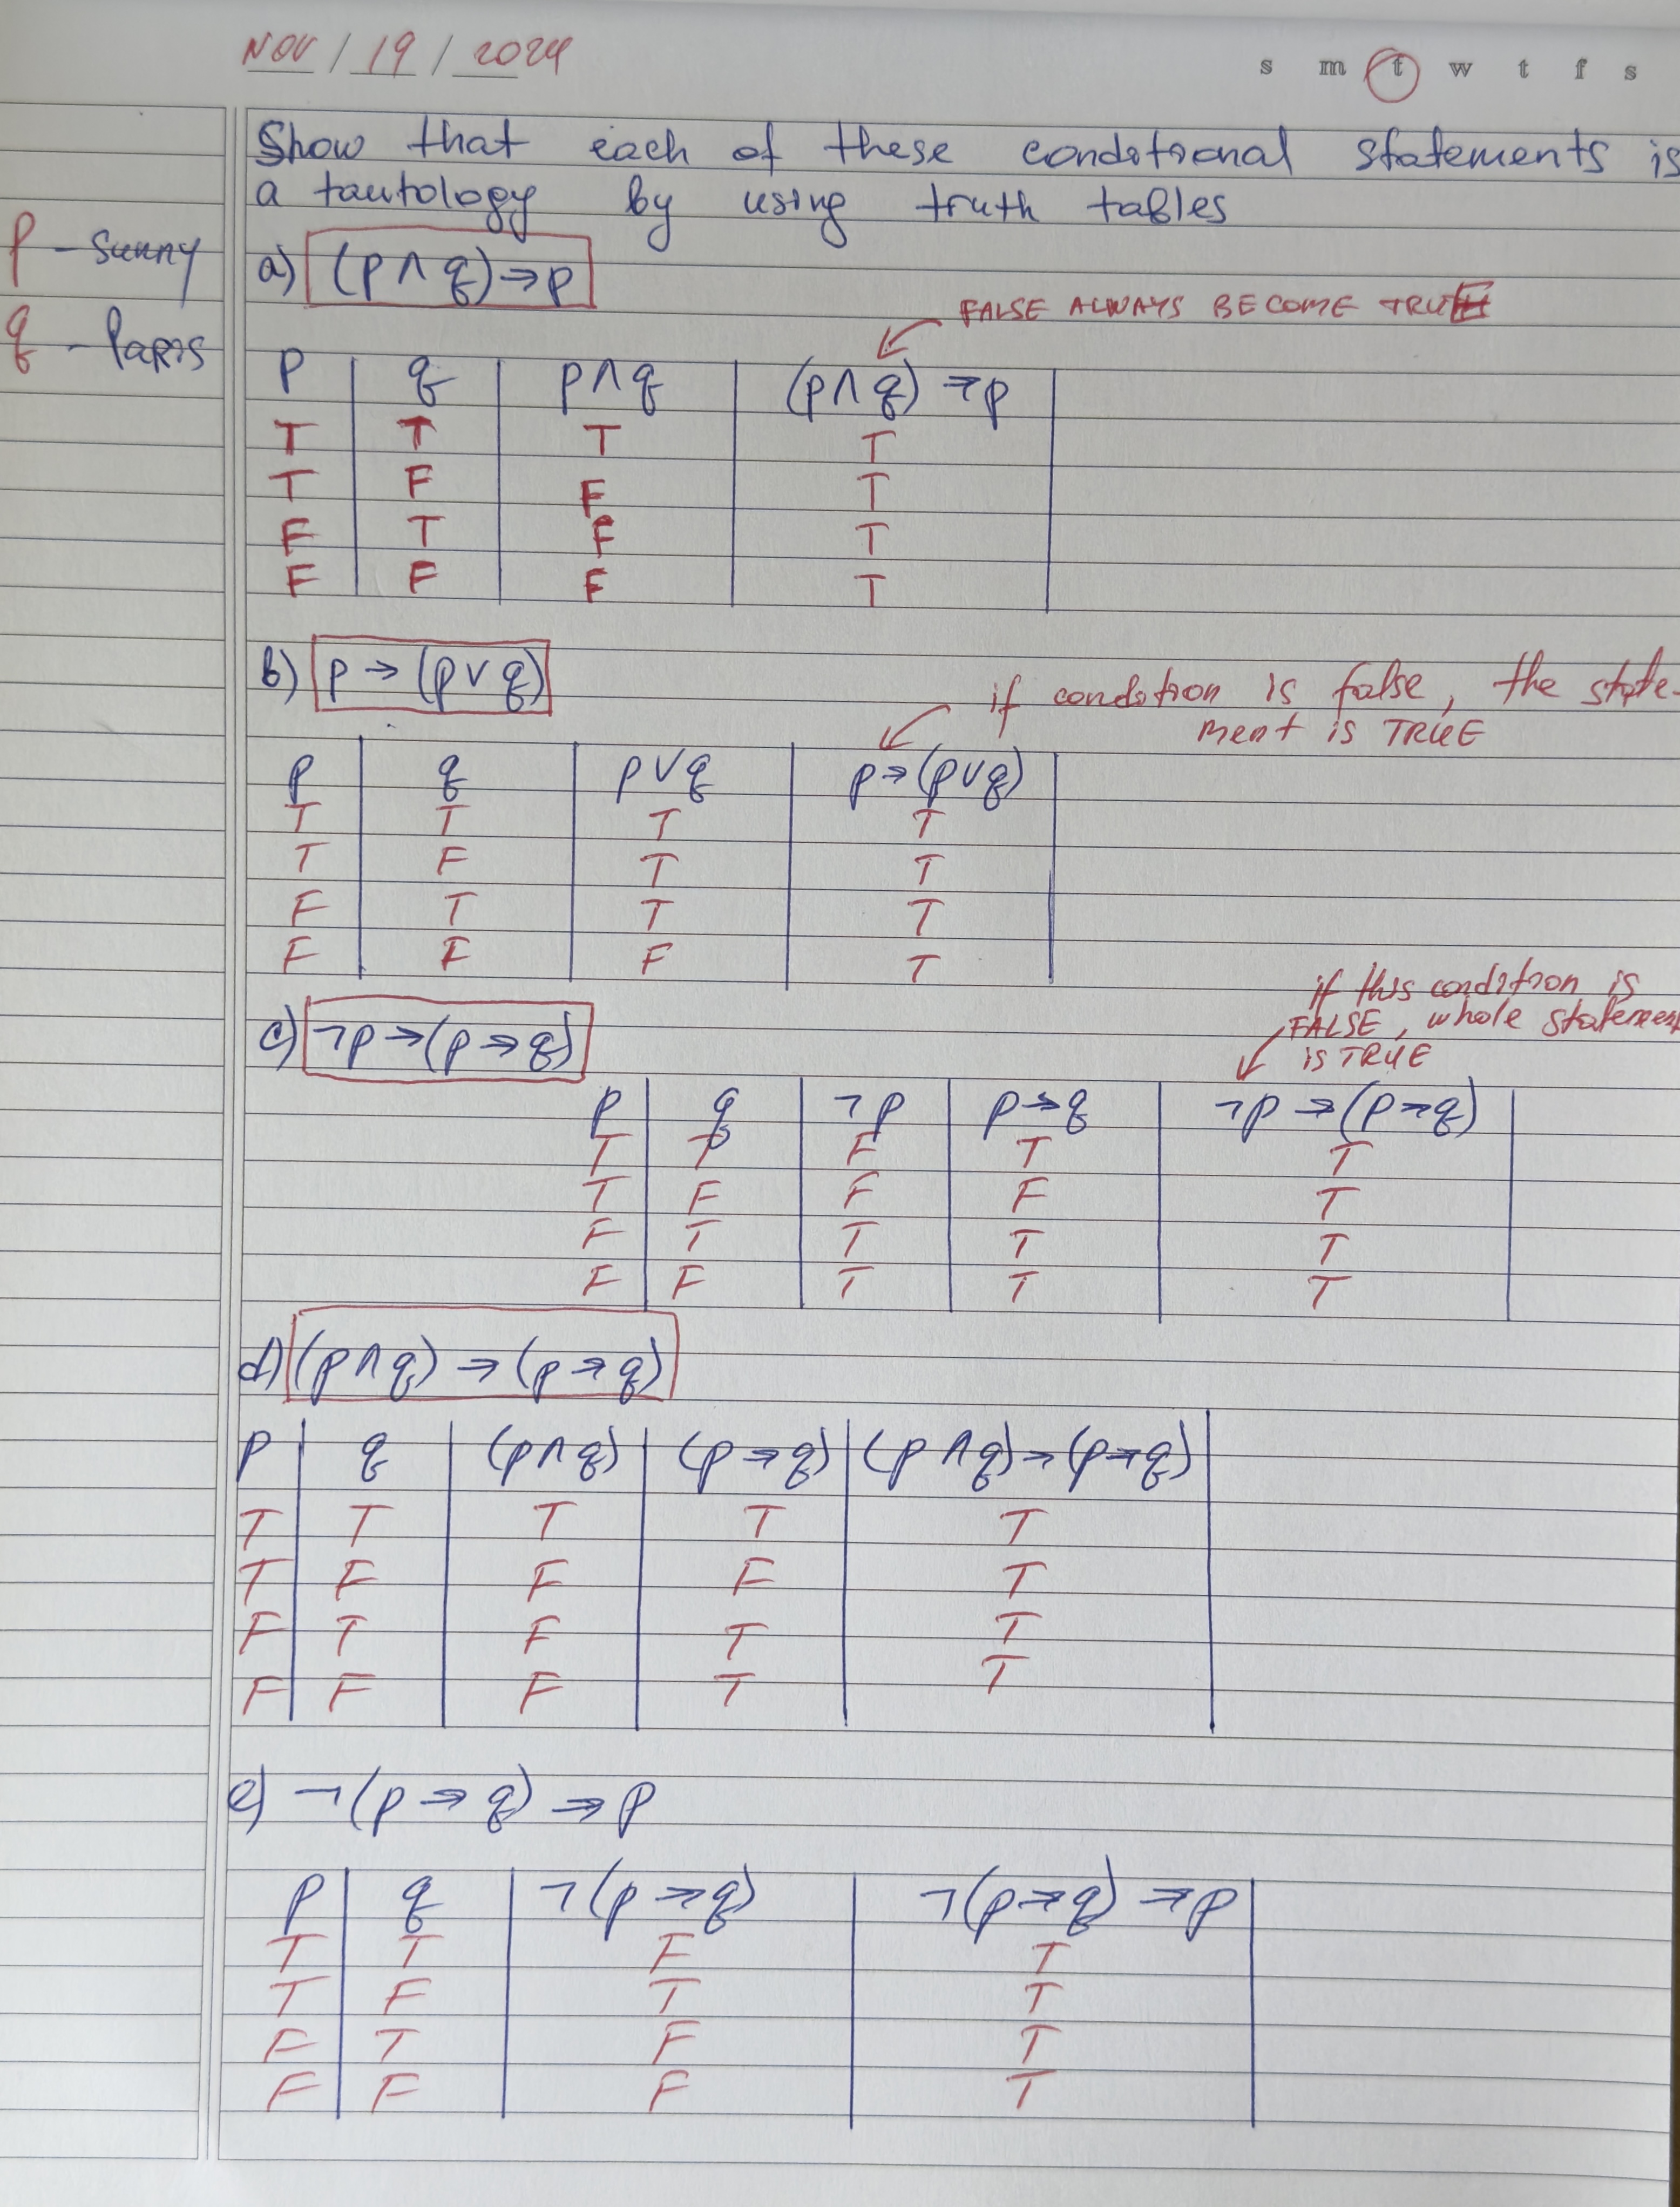 NOV / 19 / 2024
s m t w t f s
Show that each of these conditional statements is
a tautology by using truth tables
p - sunny
q - Paris
a) (p ∧ q) → p
FALSE ALWAYS BECOME TRUE
p q p ∧ q (p ∧ q) → p
T T T T
T F F T
F T F T
F F F T
b) p → (p ∨ q)
if condition is false, the state-
ment is TRUE
p q p ∨ q p → (p ∨ q)
T T T T
T F T T
F T T T
F F F T
if this condition is
FALSE, whole statement
is TRUE
c) ¬p → (p → q)
p q ¬p p → q ¬p → (p → q)
T T F T T
T F F F T
F T T T T
F F T T T
d) (p ∧ q) → (p → q)
p q (p ∧ q) (p → q) (p ∧ q) → (p → q)
T T T T T
T F F F T
F T F T T
F F F T T
e) ¬(p → q) → p
p q ¬(p → q) ¬(p → q) → p
T T F T
T F T T
F T F T
F F F T